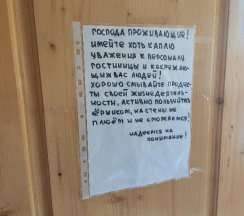 ГОСПОДА ПРОЖИВАЮЩИЕ!
ИМЕЙТЕ ХОТЬ КАПЛЮ
УВАЖЕНИЯ К ПЕРСОНАЛУ
ГОСТИНИЦЫ И К ОКРУЖАЮ-
ЩИХ ВАС ЛЮДЕЙ!
ХОРОШО СМЫВАЙТЕ ПРОДУК-
ТЫ СВОЕЙ ЖИЗНЕДЕЯТЕЛЬ-
НОСТИ, АКТИВНО ПОЛЬЗУЙТЕСЬ
ЁРШИКОМ, НА СТЕНЫ НЕ
ПЛЮЁМ И НЕ СМОРКАЕМСЯ!
НАДЕЕМСЯ НА
ПОНИМАНИЕ!